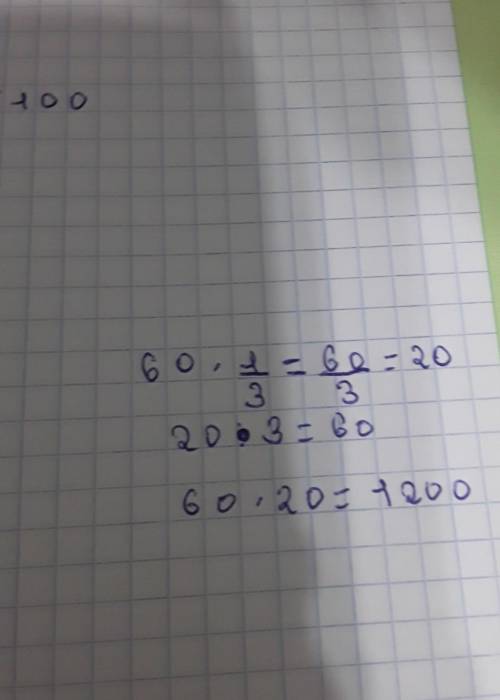 100
60 · 1/3 = 60/3 = 20
20 · 3 = 60
60 · 20 = 1200